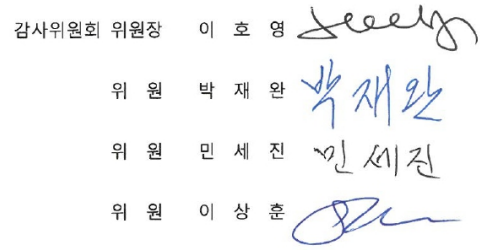 감사위원회 위원장 이 호 영
위 원 박 재 완 박재완
위 원 민 세 진 민세진
위 원 이 상 훈